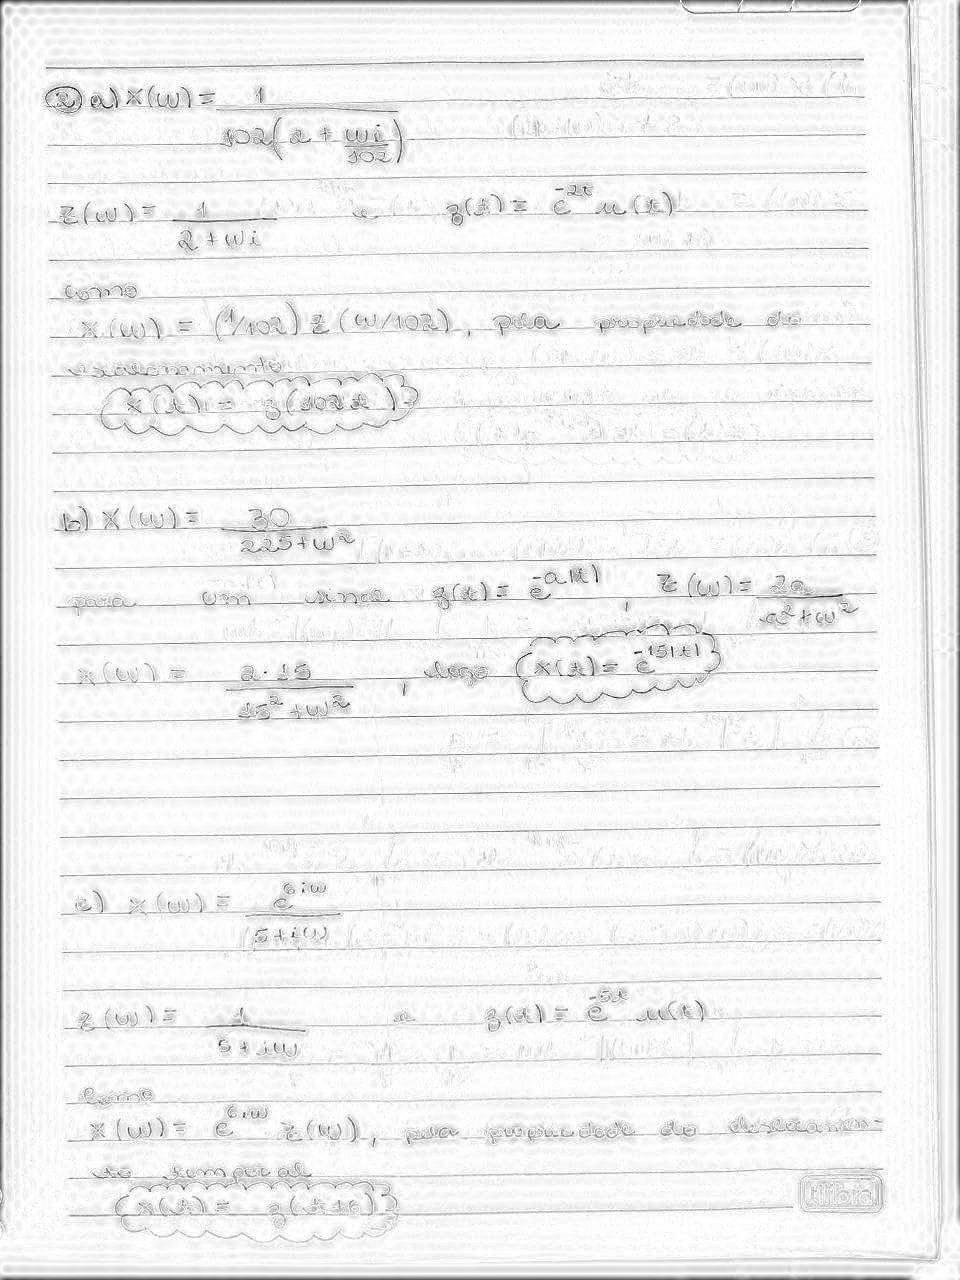 2) a) X(ω) = 1 / 102(2 + ωi/102)
Z(ω) = 1 / 2 + ωi e z(t) = e^-2t u(t)
como
X(ω) = (1/102) Z(ω/102), pela propriedade do
escalonamento
x(t) = z(102t)
b) X(ω) = 30 / 225 + ω²
para um sinal z(t) = e^-a|t|, Z(ω) = 2a / a² + ω²
X(ω) = 2·15 / 15² + ω², logo x(t) = e^-15|t|
c) X(ω) = e^6iω / 5 + iω
Z(ω) = 1 / 5 + iω e z(t) = e^-5t u(t)
Como
X(ω) = e^6iω Z(ω), pela propriedade do deslocamen-
to temporal
x(t) = z(t+6)
tilibra